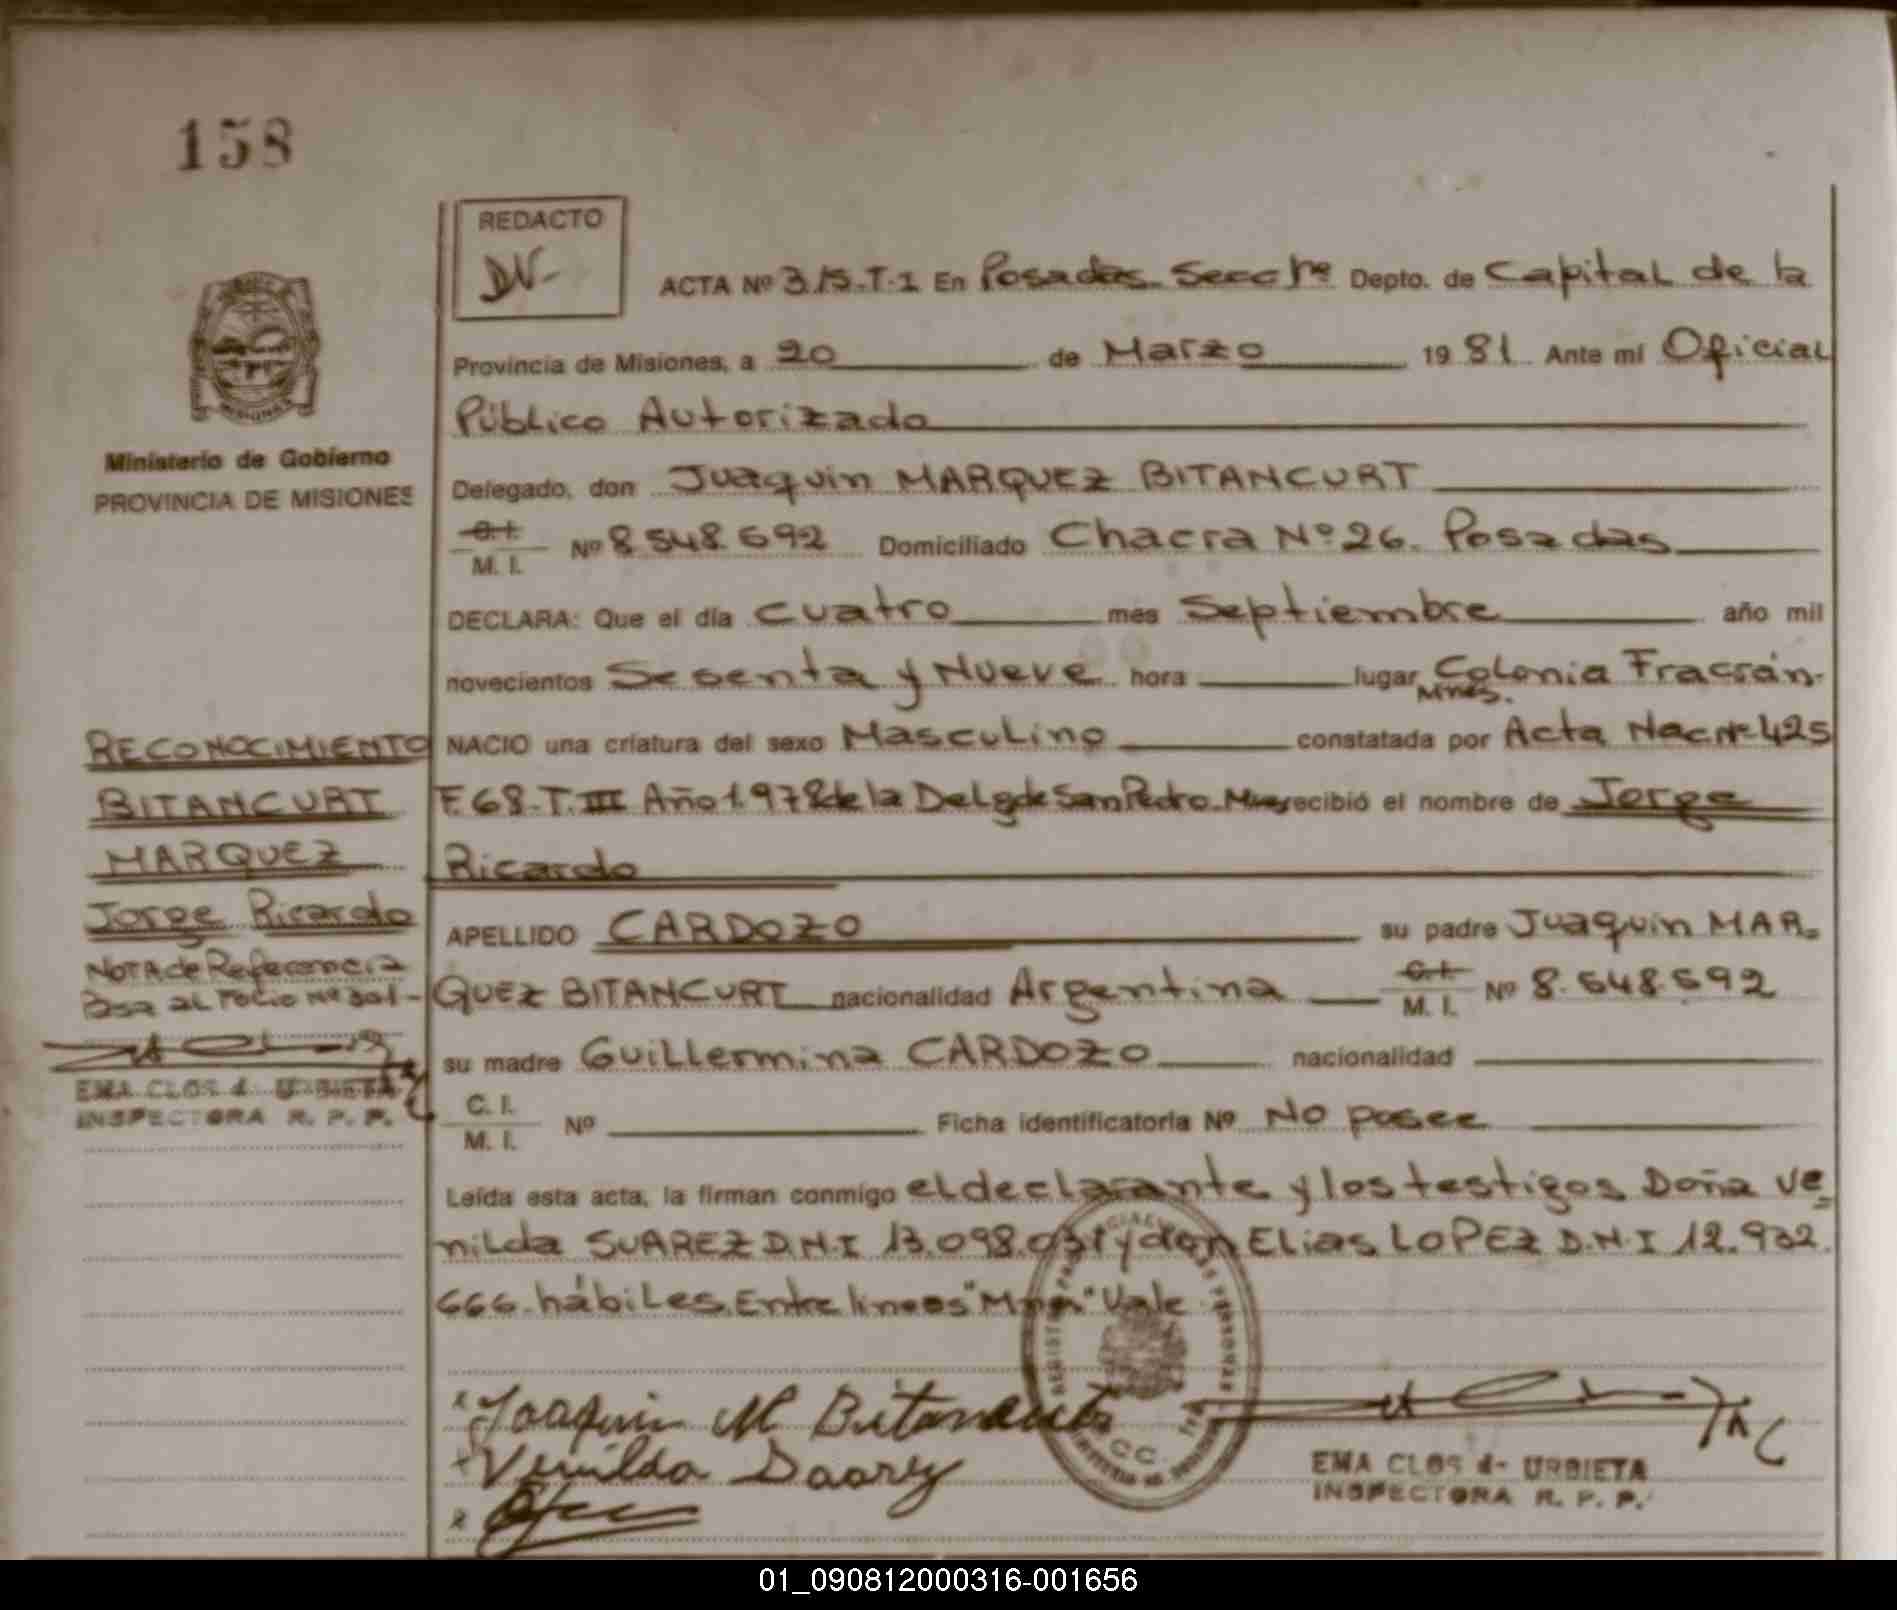 158
REDACTO
ACTA Nº 315-T-I En Posadas Secc 1ra Depto. de Capital de la
Provincia de Misiones, a 20 de Marzo 1981 Ante mí Oficial
Público Autorizado
Ministerio de Gobierno
PROVINCIA DE MISIONES
Delegado, don Juaquin MARQUEZ BITANCURT
C.I.
M. I. Nº 8.548.592 Domiciliado Chacra Nº 26. Posadas
DECLARA: Que el día cuatro mes Septiembre año mil
novecientos Sesenta y Nueve hora lugar Colonia Fracrán-
Mnes.
NACIO una criatura del sexo Masculino constatada por Acta Nac Nº 425
F.68-T.III Año 1.978 de la Delg de San Pedro-Mnes recibió el nombre de Jorge
Ricardo
RECONOCIMIENTO
BITANCURT
MARQUEZ
Jorge Ricardo
NOTA de Referencia
Pasa al Folio Nº 301-
EMA CLOS de URBIETA
INSPECTORA R. P. P.
APELLIDO CARDOZO su padre Juaquin MAR-
QUEZ BITANCURT nacionalidad Argentina C.I.
M. I. Nº 8.548.592
su madre Guillermina CARDOZO nacionalidad
C. I.
M. I. Nº Ficha identificatoria Nº No posee
Leída esta acta, la firman conmigo el declarante y los testigos Doña Ve=
nilda SUAREZ D.N.I 13.098.031 y don Elias LOPEZ D.N.I 12.932.
666-hábiles. Entre lineas "Mnes" Vale
Joaquin M Bitancurt
Venilda Suarez
EMA CLOS de URBIETA
INSPECTORA R. P. P.
01_090812000316-001656